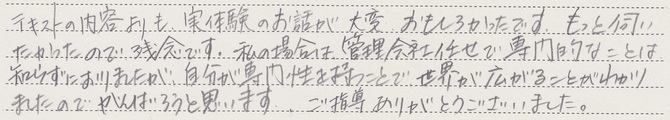 テキストの内容よりも、実体験のお話が大変おもしろかったです。もっと伺い
たかったので残念です。私の場合は、管理会社任せで専門的なことは
知らずにおりましたが、自分が専門性を持つことで世界が広がることがわかり
ましたのでがんばろうと思います。ご指導ありがとうございました。